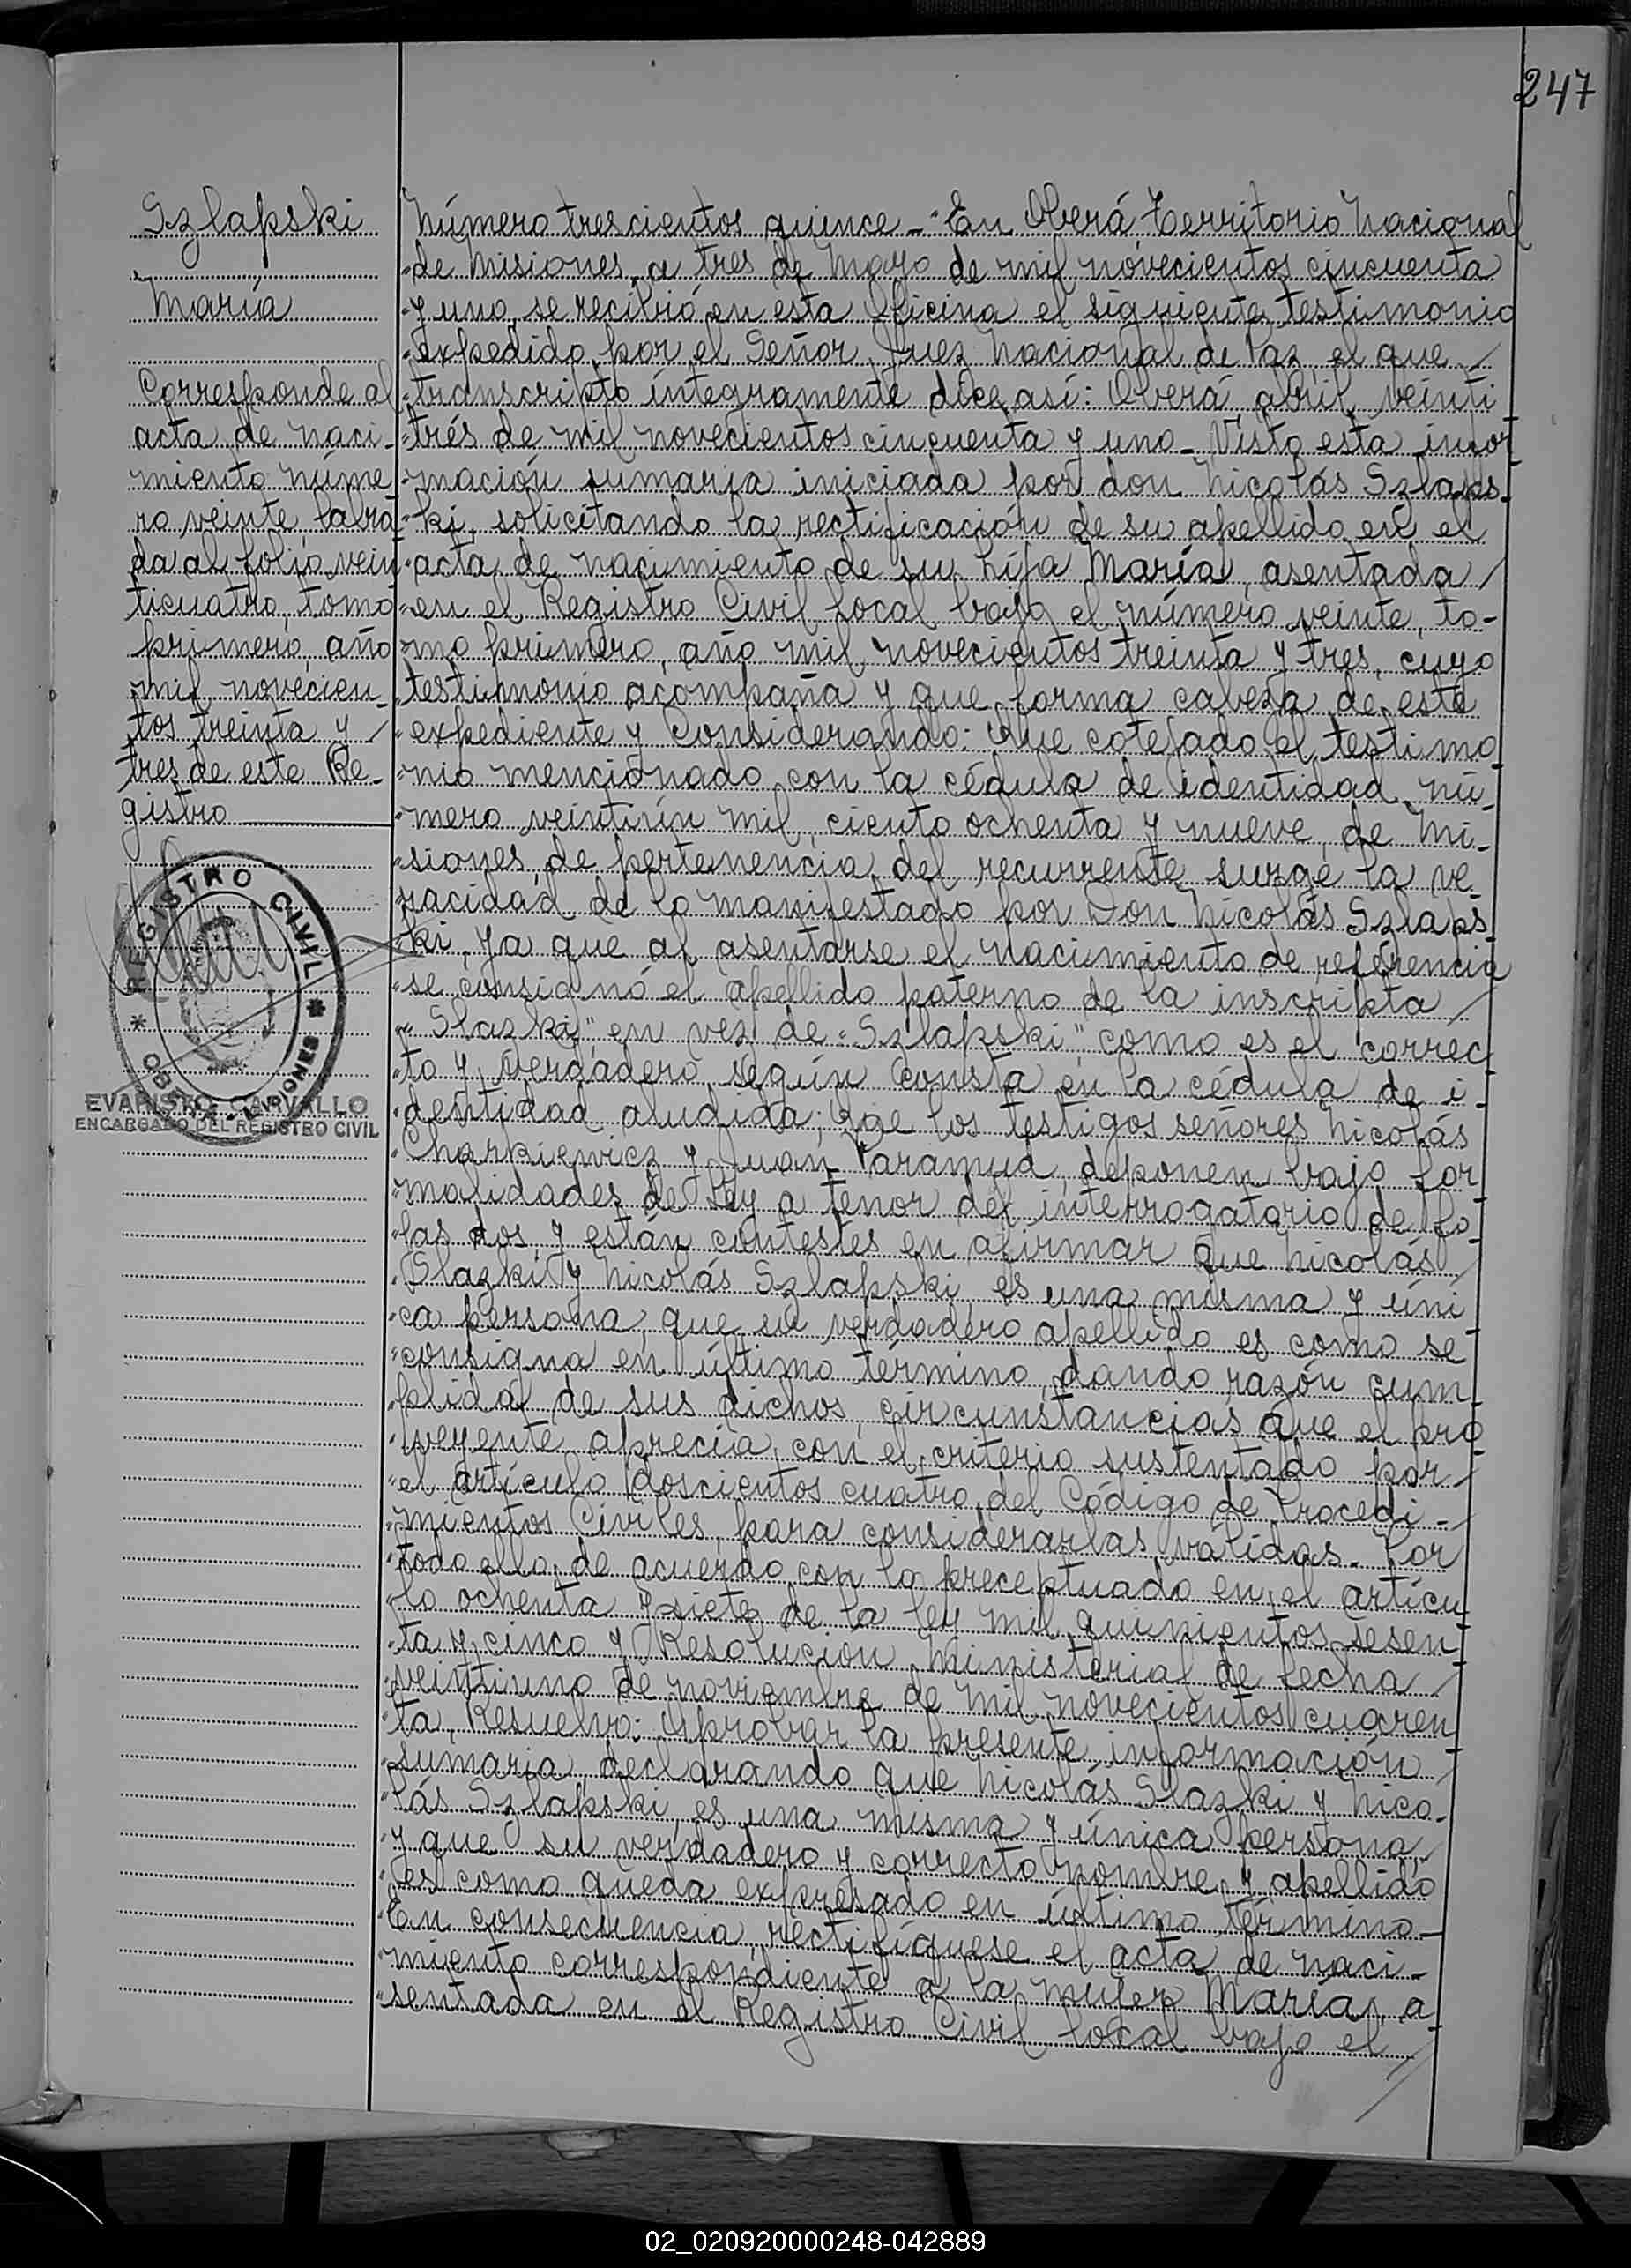 247
Szlapski
María
Corresponde al
acta de naci-
miento núme-
ro veinte, labra-
da al folio vein-
ticuatro, tomo
primero, año
mil novecien-
tos treinta y /
tres de este Re-
gistro
REGISTRO CIVIL
OBERA - MISIONES
EVARISTO CARVALLO
ENCARGADO DEL REGISTRO CIVIL
Número trescientos quince - "En Oberá, Territorio Nacional
"de Misiones, a tres de Mayo de mil novecientos cincuenta
"y uno, se recibió en esta Oficina el siguiente testimonio
"expedido por el Señor Juez Nacional de Paz, el que /
"transcripto íntegramente dice así: Oberá, abril veinti
"trés de mil novecientos cincuenta y uno - Visto esta infor-
"mación sumaria iniciada por don Nicolás Szlaps-
"ki, solicitando la rectificación de su apellido en el
"acta de nacimiento de su hija María, asentada /
"en el Registro Civil local bajo el número veinte, to-
"mo primero, año mil novecientos treinta y tres, cuyo
"testimonio acompaña y que forma cabeza de este
"expediente y Considerando: Que cotejado el testimo-
"nio mencionado con la cédula de identidad nú-
"mero veintiún mil, ciento ochenta y nueve, de Mi-
"siones, de pertenencia del recurrente, surge la ve-
"racidad de lo manifestado por Don Nicolás Szlaps-
"ki, ya que al asentarse el nacimiento de referencia
"se consignó el apellido paterno de la inscripta /
"“Slazki” en vez de “Szlapski”, como es el correc-
"to y verdadero, según consta en la cédula de i-
"dentidad aludida; Que los testigos señores Nicolás
"Charkiewicz y Juan Paramud, deponen bajo for-
"malidades de Ley a tenor del interrogatorio de fo-
"jas dos y están contestes en afirmar que Nicolás /
"Slazki y Nicolás Szlapski, es una misma y úni-
"ca persona, que su verdadero apellido es como se
"consigna en último término, dando razón cum-
"plida de sus dichos, circunstancias que el pro-
"veyente aprecia con el criterio sustentado por /
"el artículo doscientos cuatro del Código de Procedi-
"mientos Civiles, para considerarlas válidas. Por
"todo ello, de acuerdo con lo preceptuado en el artícu-
"lo ochenta y siete de la ley mil quinientos sesen-
"ta y cinco y Resolución Ministerial de fecha /
"veintiuno de noviembre de mil novecientos cuaren-
"ta, Resuelvo: Aprobar la presente información /
"sumaria, declarando que Nicolás Slazki y Nico-
"lás Szlapski, es una misma y única persona,
"y que su verdadero y correcto nombre y apellido
"es como queda expresado en último término -
"En consecuencia, rectifíquese el acta de naci-
"miento correspondiente a la mujer María, a-
"sentada en el Registro Civil local bajo el /
02_020920000248-042889